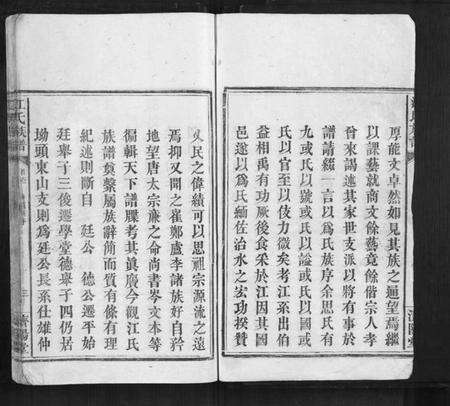 厚能文卓然如見其族之遹望焉繼
以課藝就商文餘藝竟餘俗宗人孝
曾來謁述其家世支派以將有事於
譜請綴一言以爲氏族序余思氏有
九或氏以號或氏以謚或氏以國或
氏以官至以伎力微矣考江系出伯
益相禹有功厥後食采於江因其國
邑遂以爲氏緬佐治水之宏功揆贊
乂民之偉績可以思祖宗源流之遠
焉抑又聞之崔鄭盧李諸族好自矜
地望唐太宗廉之命尚書岑文本等
徧輯天下譜牒考其真贋今觀江氏
族譜奠繫屬族辭簡而質有條有理
紀述則斷自 廷公 德公遷平始
廷舉子三俊遷學堂德舉子四仍居
坳頭東山支則爲廷公長系仕雄仲
江氏族譜
濟陽堂